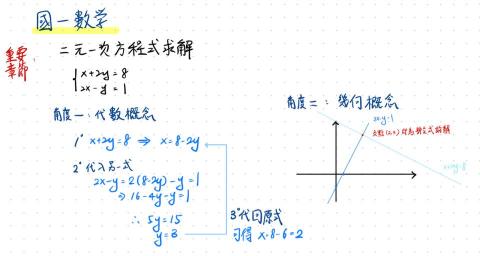 國一數学
重要章節:
二元一次方程式求解
x+2y=8
2x-y=1
角度一:代數概念
1° x+2y=8 ⇒ x=8-2y
2° 代入另一式
2x-y=2(8-2y)-y=1
⇒ 16-4y-y=1
∴ 5y=15
y=3
3° 代回原式
可得 x=8-6=2
角度二:幾何概念
2x-y=1
交點(2,3)即為方程式的解
x+2y=8